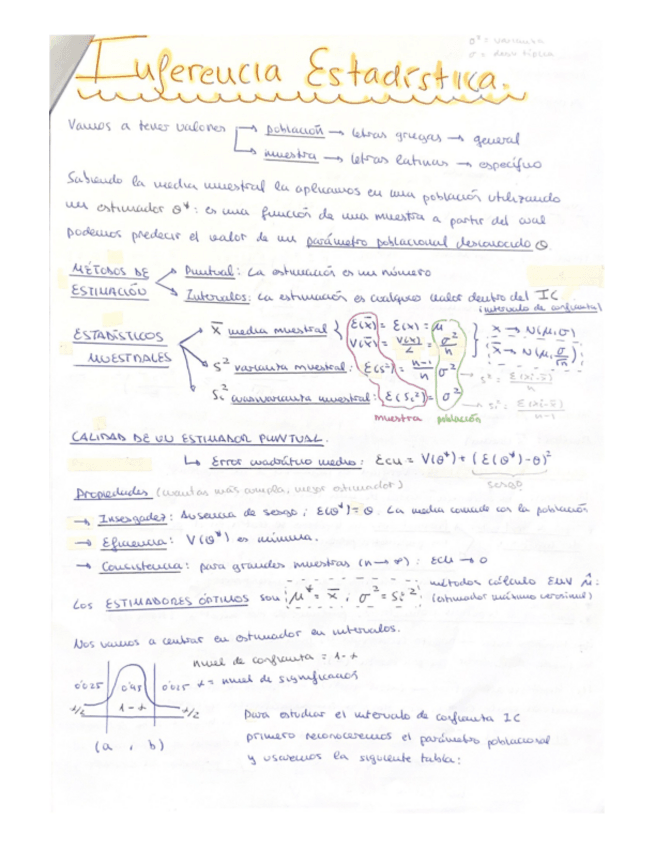 σ² = varianza
σ = desv típica
Inferencia Estadística.
Vamos a tener valores → población → letras griegas → general
→ muestra → letras latinas → específico
Sabiendo la media muestral la aplicamos en una población utilizando
un estimador θ*: es una función de una muestra a partir del cual
podemos predecir el valor de un parámetro poblacional desconocido θ.
MÉTODOS DE ESTIMACIÓN
Puntual: La estimación es un número
Intervalos: La estimación es cualquier valor dentro del IC
(intervalo de confianza)
ESTADÍSTICOS MUESTRALES
x̄ media muestral { E(x̄) = E(x) = μ
V(x̄) = V(x)/2 = σ²/n
x → N(μ,σ)
x̄ → N(μ, σ/√n)
S² varianza muestral: E(S²) = n-1/n σ² → S² = Σ(xi-x̄)/n
Sc² cuasivarianza muestral: E(Sc²) = σ² → Sc² = Σ(xi-x̄)/n-1
muestra población
CALIDAD DE UN ESTIMADOR PUNTUAL.
↳ Error cuadrático medio: ECM = V(θ*) + (E(θ*)-θ)²
sesgo
Propiedades (cuantas más cumpla, mejor estimador)
→ Insesgadez: Ausencia de sesgo; E(θ*) = θ. La media coincide con la población
→ Eficiencia: V(θ*) es mínima.
→ Consistencia: para grandes muestras (n→∞): ECM → 0
Los ESTIMADORES ÓPTIMOS son μ* = x̄, σ² = Sc²
métodos cálculo EMV μ̂:
(estimador máximo verosímil)
Nos vamos a centrar en estimador en intervalos.
nivel de confianza = 1-α
α = nivel de significancia
0'025 0'95 0'025
α/2 1-α α/2
(a , b)
Para estudiar el intervalo de confianza IC
primero reconoceremos el parámetro poblacional
y usaremos la siguiente tabla: